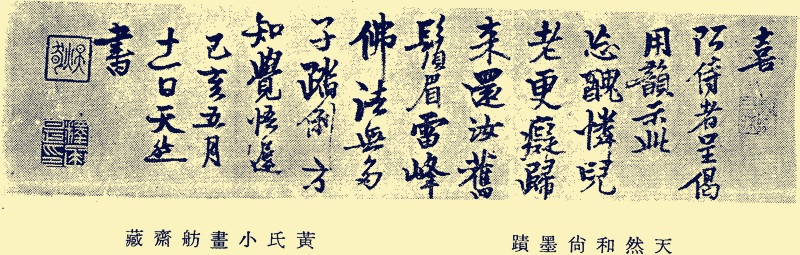 喜
阿侍者呈偈
用韻示此
忘醜憐兒
老更癡歸
来還汝舊
鬚眉雷峰
佛法無多
子踏倒方
知覺悟遲
己亥五月
十一日天然
書
天然和尙墨蹟
黃氏小畫舫齋藏